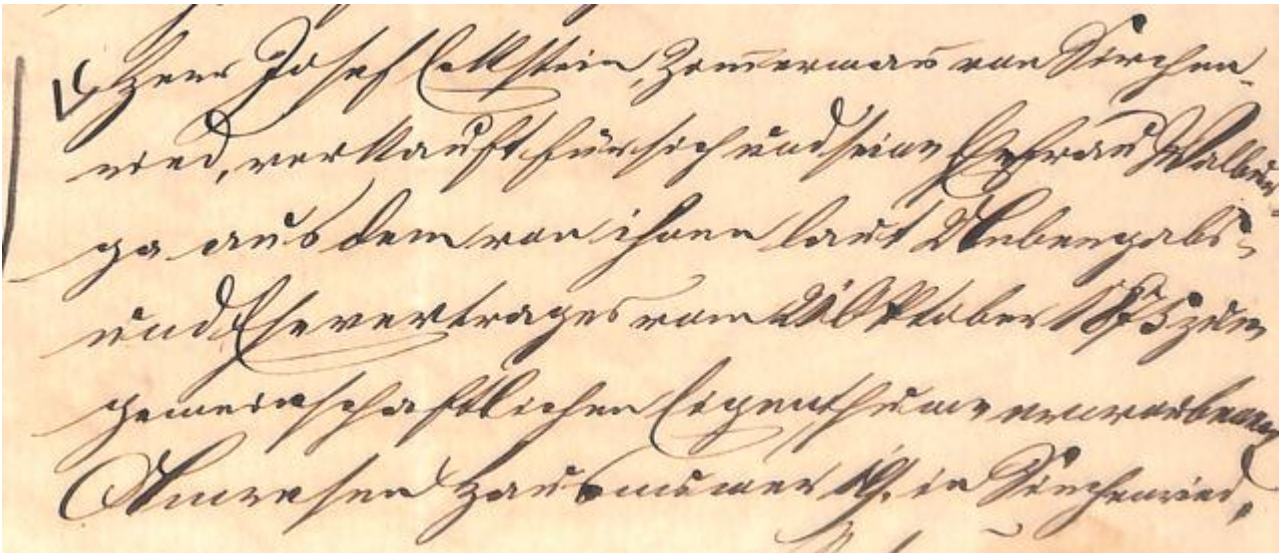 Herr Josef Eckstein, Zimmermann von Kirchen-
ried, verkauft für sich und seine Ehefrau Walbur-
ga aus dem von ihnen laut Uebergabs-
und Ehevertrages vom 21 Oktober 1873 zum
gemeinschaftlichen Eigenthume erworbenen
Anwesen Hausnummer 19. in Kirchenried,